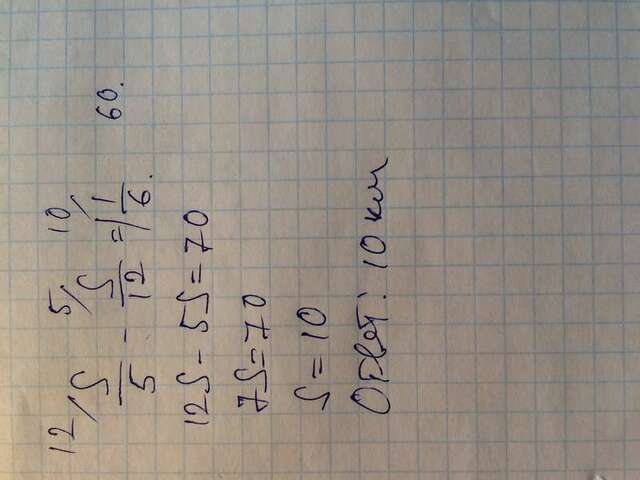 12/ 5/ 10/
S/5 - S/12 = 1 1/6. 60.
12S - 5S = 70
7S = 70
S = 10
Ответ: 10 км